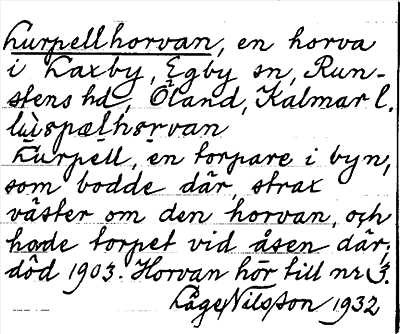 Lurpellhorvan, en horva
i Laxby, Egby sn, Run-
stens hd, Öland, Kalmar l.
lùspælhørvan
Lurpell, en torpare i byn,
som bodde där, strax
väster om den horvan, och
hade torpet vid åsen där;
död 1903. Horvan hör till nr 3.
Låge Nilsson 1932